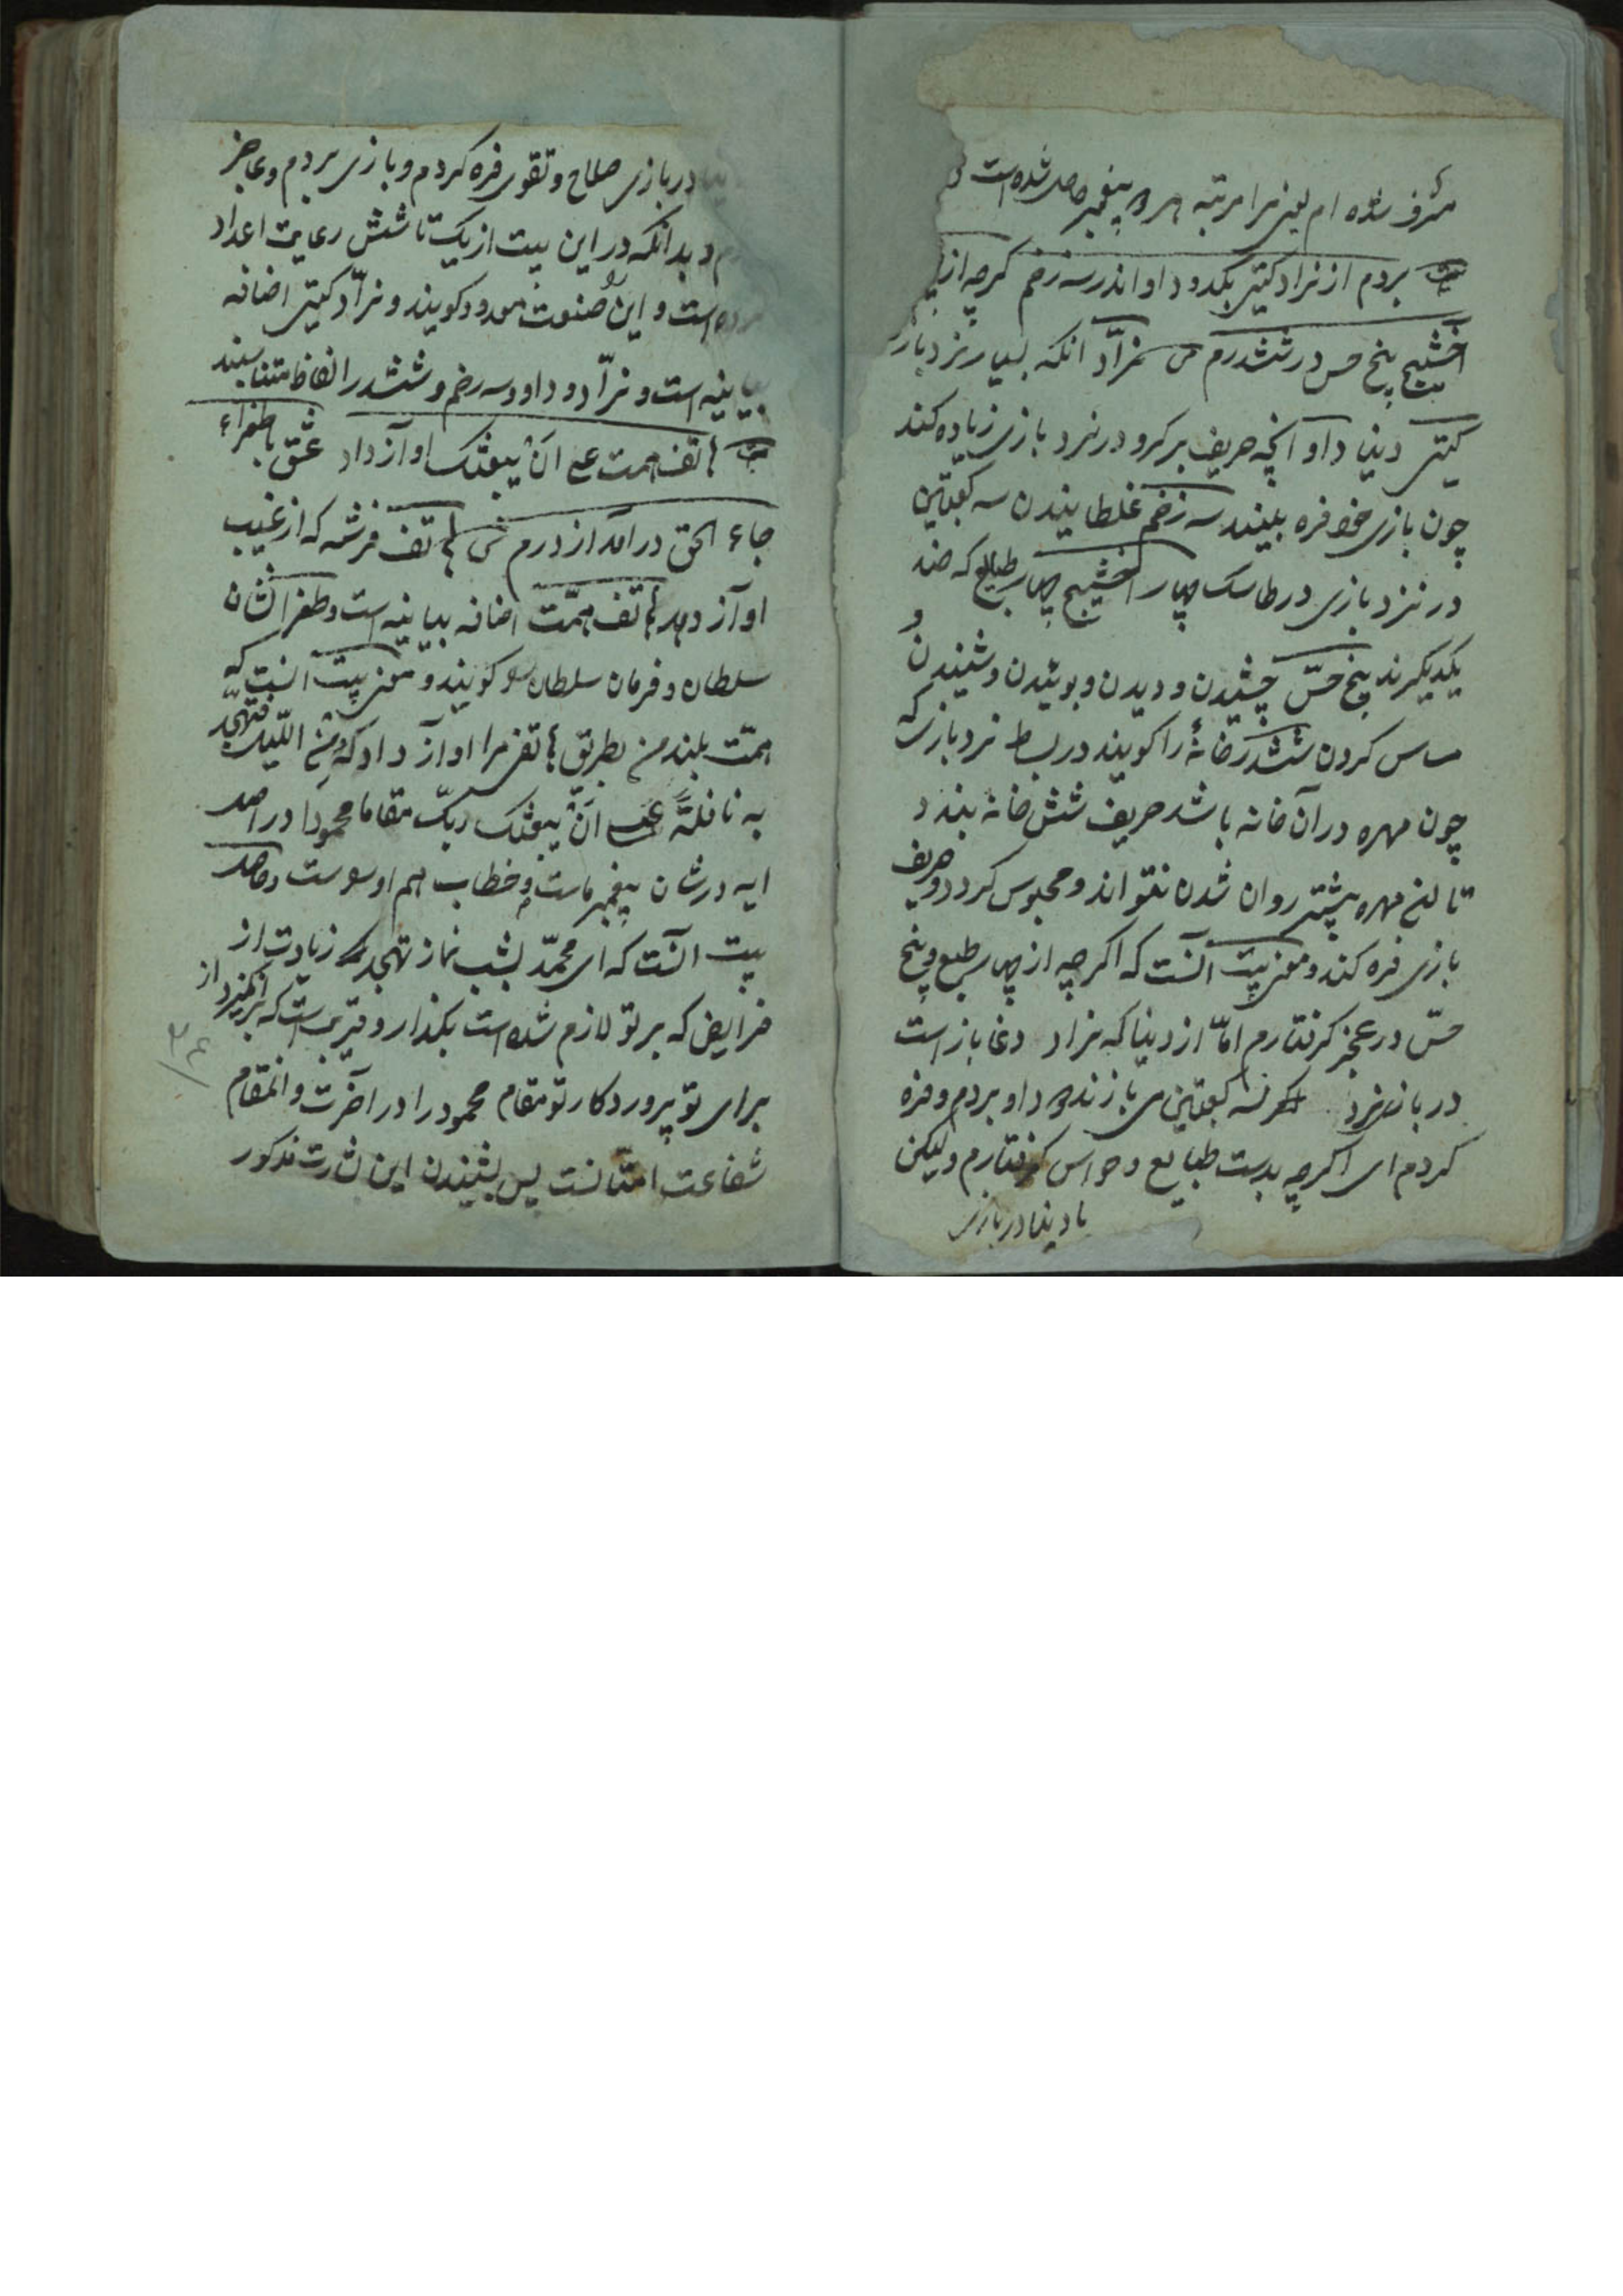 مشرف شده ام یعنی مرا مرتبه پیغمبر حاصل شده است
بیت بردم از نراد گیتی یکدو داو اندر سه زخم گرچه از
اخشیج پنج حس در ششدرم ش نرّاد آنکه بسیار نرد بازد
گیتی دنیا داو آنچه حریف بر گرو در نرد بازی زیاده کند
چون بازی خود فره بیند سه زخم غلطانیدن سه کعبتین
در نرد بازی در طاسک چهار اخشیج چهار طبایع که ضد
یکدیگرند پنج حسّ چشیدن و دیدن و بوئیدن و شنیدن و
مساس کردن ششدر خانهٔ را گویند در بساط نرد بازی که
چون مهره در آن خانه باشد حریف شش خانه بندد
تا آن مهره پیشتر روان شدن نتواند و محبوس گردد و حریف
بازی فره کند و معنی بیت آنست که اگرچه از چهار طبع و پنج
حسّ در عجز گرفتارم امّا از دنیا که نراد دغا باز است
در بازی نرد که سه کعبتین می بازند داو بردم و فره
کردم ای اگرچه بدست طبایع و حواس گرفتارم ولیکن
با دنیا در بازی
در بازی صلاح و تقوی فره کردم و بازی بردم و عاجز
و بدانکه در این بیت از یک تا شش رعایت اعداد
است و این صنعت معدود گویند و نرّاد گیتی اضافه
بیانیه است و نرّاد و داو و سه زخم و ششدر الفاظ متناسبند
بیت هاتف همت عسی ان یبعثک آواز داد عشق با طغراء
جاء الحق در آمد از درم ش هاتف فرشته که از غیب
آواز دهد هاتف همّت اضافه بیانیه است و طغرا نشان
سلطان و فرمان سلطان گویند و معنی بیت آنست که
همّت بلند من بطریق هاتف مرا آواز داد که و من اللّیل فتهجّد
به نافلة عسی ان یبعثک ربّک مقاما محمودا در اصل
ایه در شان پیغمبر ماست و خطاب هم اوست و حاصل
بیت آنست که ای محمّد بشب نماز تهجد زیادت از
فرایض که بر تو لازم شده است بگذار و قریب است که برانگیزد از
برای تو پروردگار تو مقام محمود را در آخرت و آنمقام
شفاعت امّتانست پس بشنیدن این بشارت مذکور